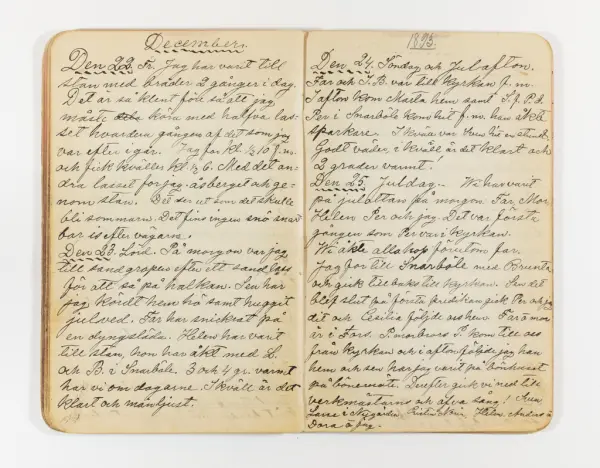 December.
Den 22. Fr. Jag har varit till
stan med bräder 2 gånger i dag.
Det är så klent före så att jag
måste kom med halfva las-
set hvardera gången af det som jag
var efter i går. Jag for kl. ½ 10 f.m.
och fick kvällen kl. ½ 6. Med det an-
dra lasset for jag åsberget och ge-
nom stan. Det ser ut som det skulle
bli sommarn. Det fins ingen snö snart
bar is efter vägarna.
Den 23. Lörd. På morgon var jag
till sandgropen efter ett sandlass
för att så på halkan. Sen har
jag kördt hem hö samt huggit
julved. Far har snickrat på
en dyngslåda. Helen har varit
till stan, hon har åkt med L.
och B. i Snarböle. 3 och 4 gr. varmt
har vi om dagarne. I kväll är det
klart och månljust.
1893.
Den 24. Söndag och Julafton.
Far och J.B. var till kyrkan f.m.
I afton kom Marta hem samt
Per i Snarböle kom hit f.m. han åkte
sparkare. I kväll var Sven hit en stund.
Godt väder i kväll är det klart och
2 grader varmt!
Den 25. Juldag. Vi har varit
på julottan på morgon. Far, Mor,
Helen, Per och jag. Det var första
gången som Per var i kyrkan.
Vi åkte allihop förutom far.
Jag for till Snarböle med Brunta
och gick tillbaks till kyrkan. Sen det
blef slut på första predikan gick Per och jag
dit och Cecilia följde oss hem. Far o mor
är i Fors. P. morbrors P. kom till oss
från kyrkan och i afton följde jag han
hem och sen har jag varit på bönhuset
på bönemöte. Derefter gick vi ned till
verkmästarns och öfva sång! Sven
Lasse i Nygården, Helen, Anders o
Dora o jag.